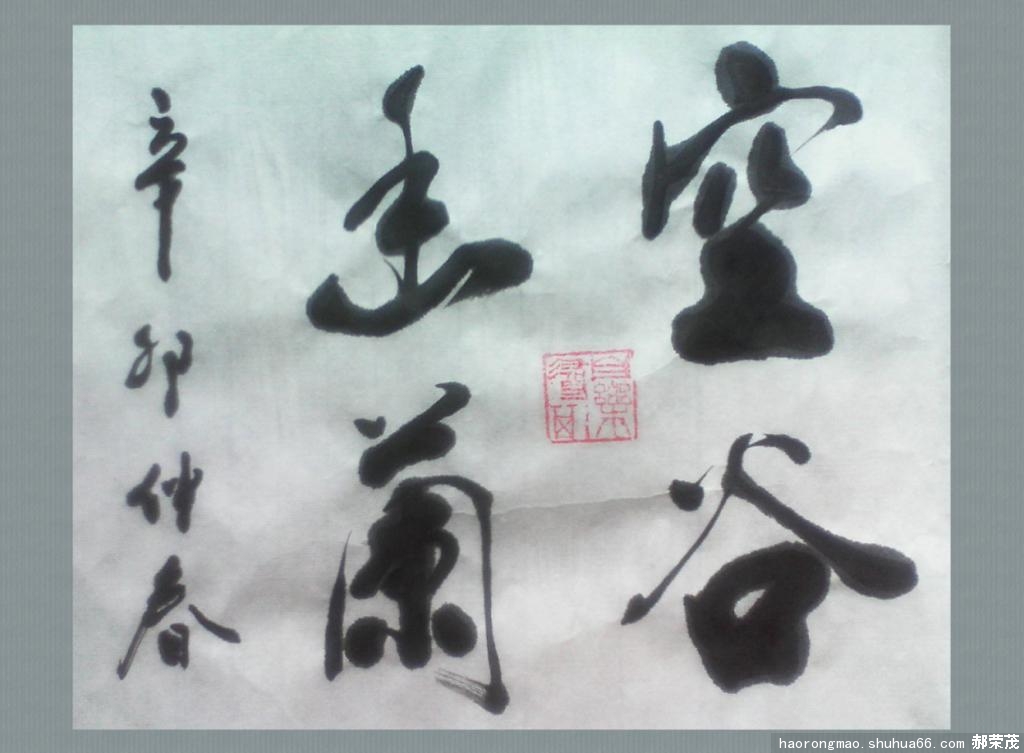 空谷
幽蘭
辛卯仲春
haorongmao.shuhua66.com 郝荣茂